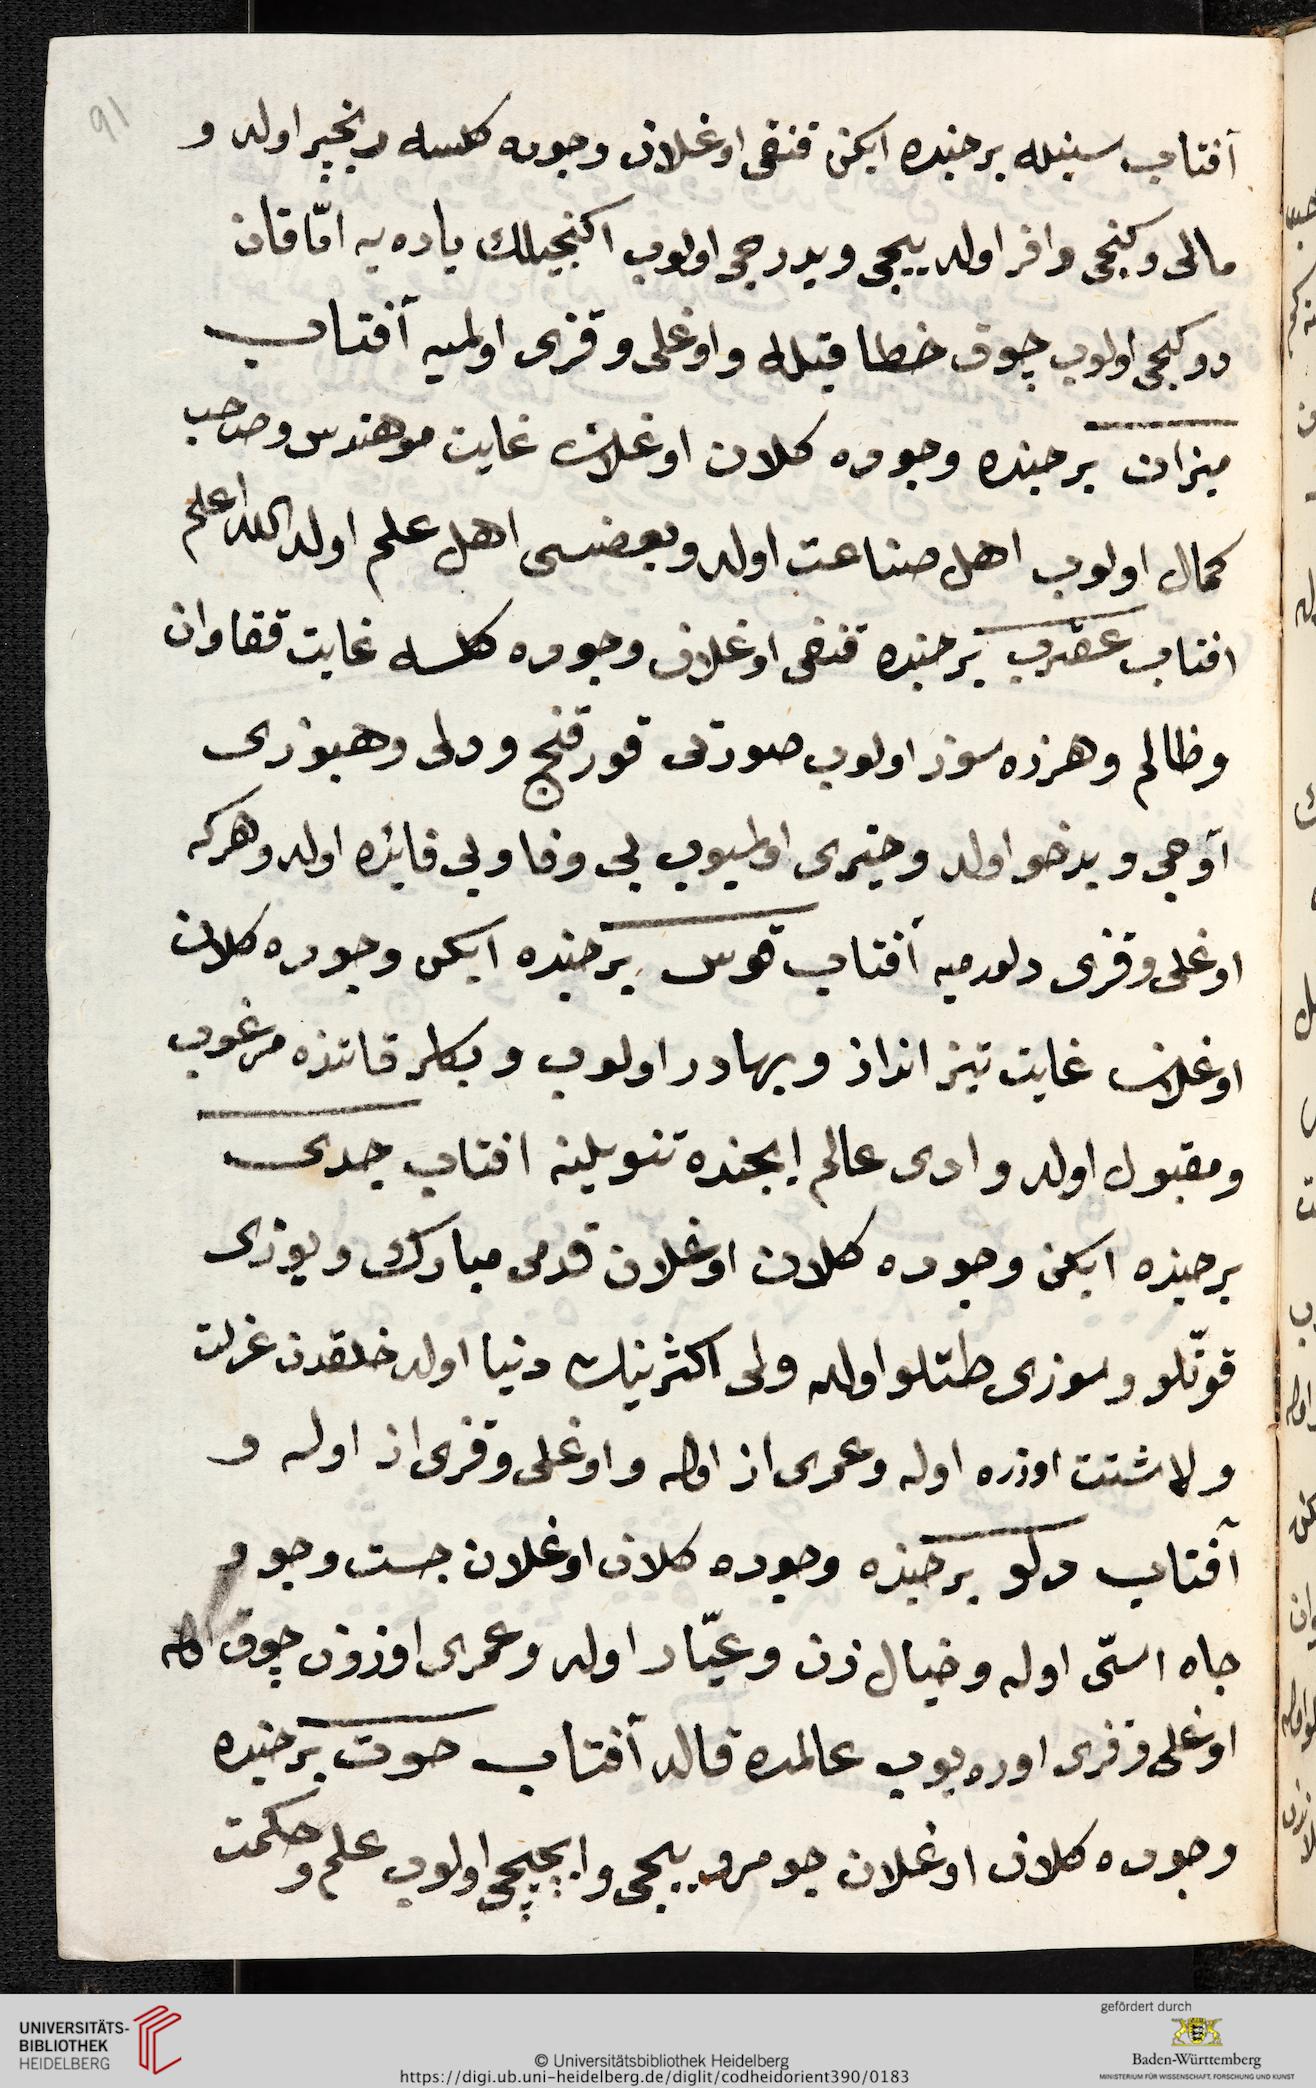 91
آفتاب سنبله برجنده ايكن قنقى اوغلان وجوده كلسه اولد و
مالى وكنجى وافر اولد ييجى ويدرجى اولوب اكنجيلك ياده يه امّا قان
دوكجى اولوب چوق خطا قيلد واوغلى وقزى اولميه آفتاب
ميزان برجنده وجوده كلان اوغلان غايت موهندس وصاحب
كمال اولوب اهل صناعت اولد وبعضسى اهل علم اولد الله اعلم
افتاب عقرب برجنده قنقى اوغلان وجوده كلسه غايت
وظالم وهرزه سوز اولوب صورتى قورقنج ودلى
آوجى وبدخو اولد وخيرى اولميوب بى وفا وبى فائده اولد وهركه
اوغلى وقزى آفتاب قوس برجنده ايكن وجوده كلان
اوغلان غايت تيز انداز وبهادر اولوب وبكلر قاتنده مرغوب
ومقبول اولد وادى عالم ايچنده افتاب جدى
برجنده ايكن وجوده كلان اوغلان قدمى مبارك ويوزى
قوتّلو وسوزى طتلو اولد ولى اكثر دنيا اولد خلقدن عزلت
اوزره اولد وعمرى از اولد واوغلى وقزى از اولد و
آفتاب دلو برجنده وجوده كلان اوغلان جست وجو و
جاه اسّى اولد وخيال زن وعيّار اولد وعمرى اوزون چوق اولد
اوغلى وقزى عالمده قالد آفتاب حوت برجنده
وجوده كلان اوغلان جومرد ييجى وايچيجى اولوب علم وحكمت
UNIVERSITÄTS-
BIBLIOTHEK
HEIDELBERG
© Universitätsbibliothek Heidelberg
https://digi.ub.uni-heidelberg.de/diglit/codheidorient390/0183
gefördert durch
Baden-Württemberg
MINISTERIUM FÜR WISSENSCHAFT, FORSCHUNG UND KUNST